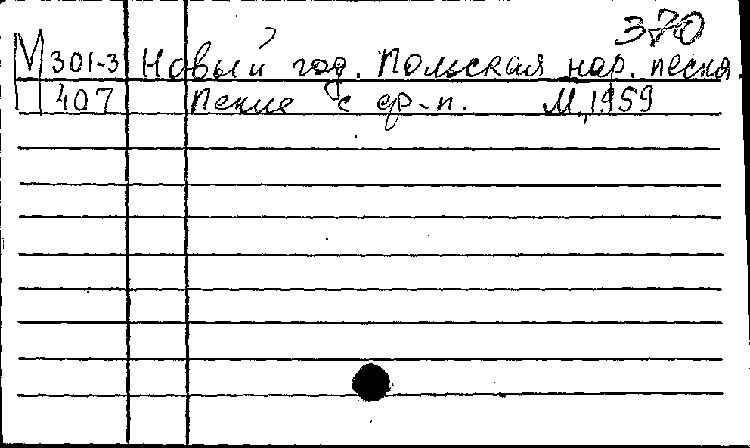 370
М 301-3 Новый год. Польская нар. песня.
407 Пение с ф-п. М., 1959